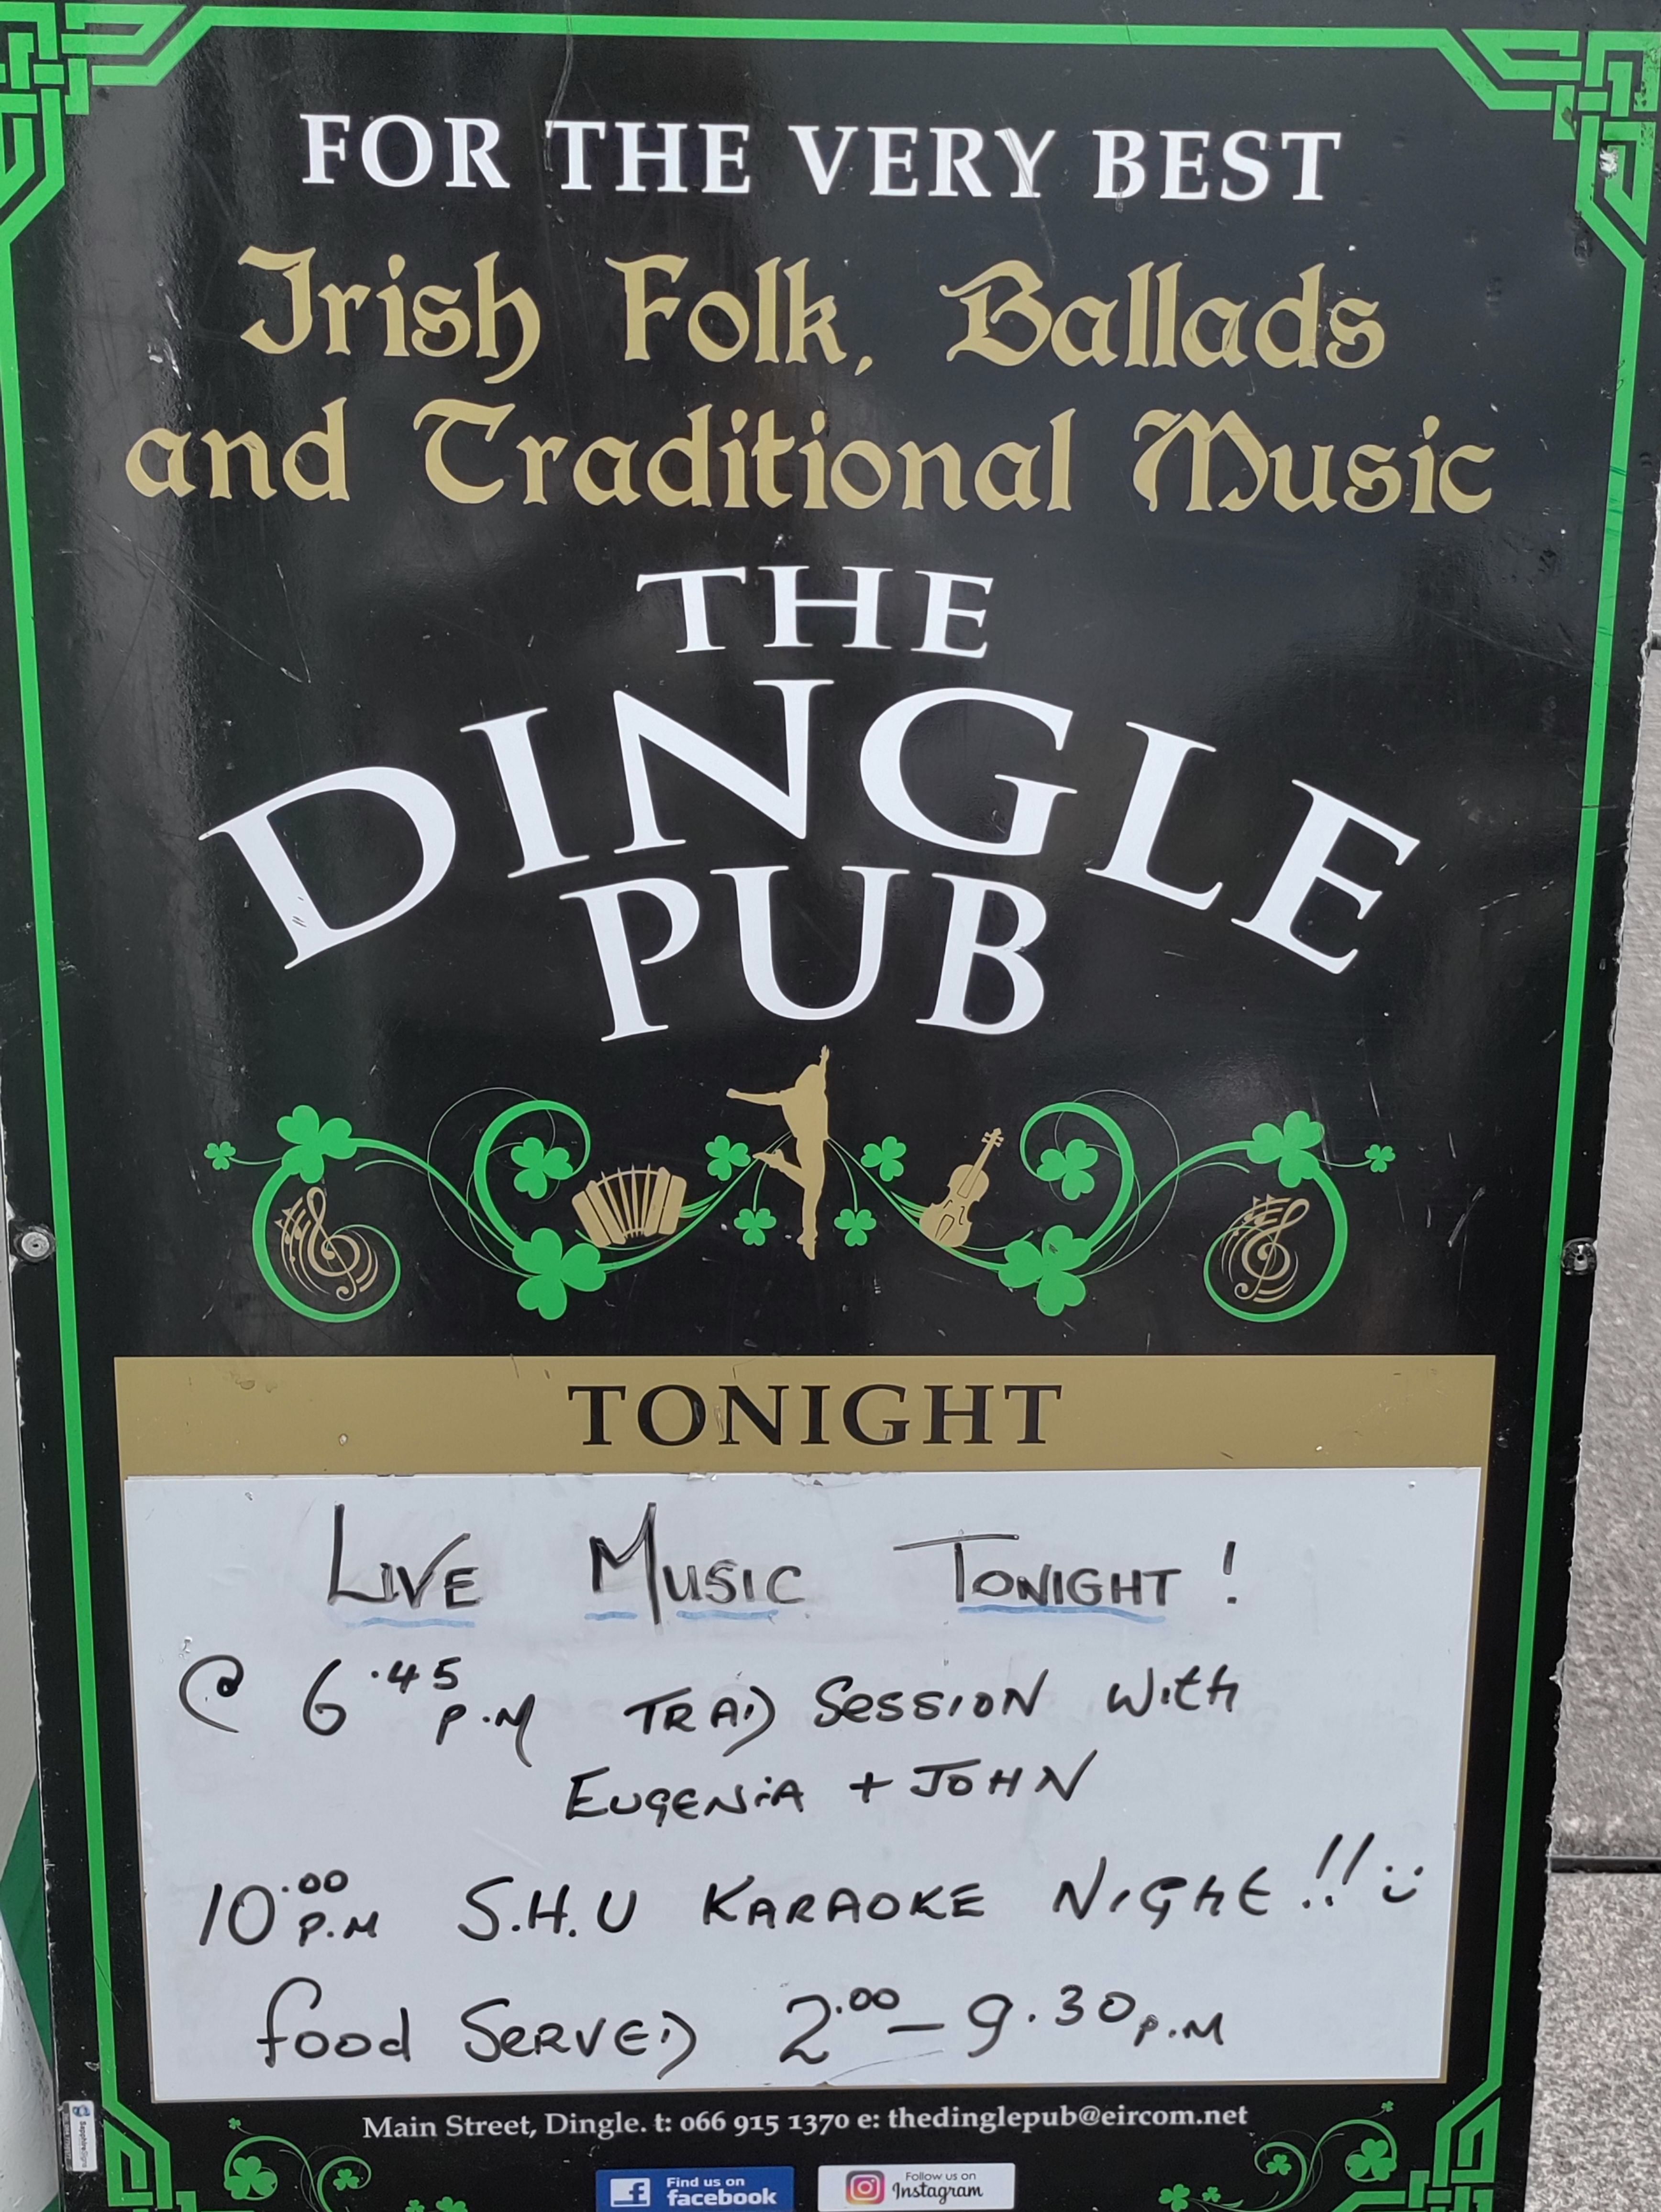 FOR THE VERY BEST
Irish Folk, Ballads
and Traditional Music
THE
DINGLE
PUB
TONIGHT
LIVE MUSIC TONIGHT!
@ 6.45 P.M TRAD SESSION with
EUGENiA + JOHN
10.00 P.M S.H.U KARAOKE NIGHt!! :)
food SERVED 2.00 – 9.30 P.M
Main Street, Dingle. t: 066 915 1370 e: thedinglepub@eircom.net
Find us on
facebook
Follow us on
Instagram